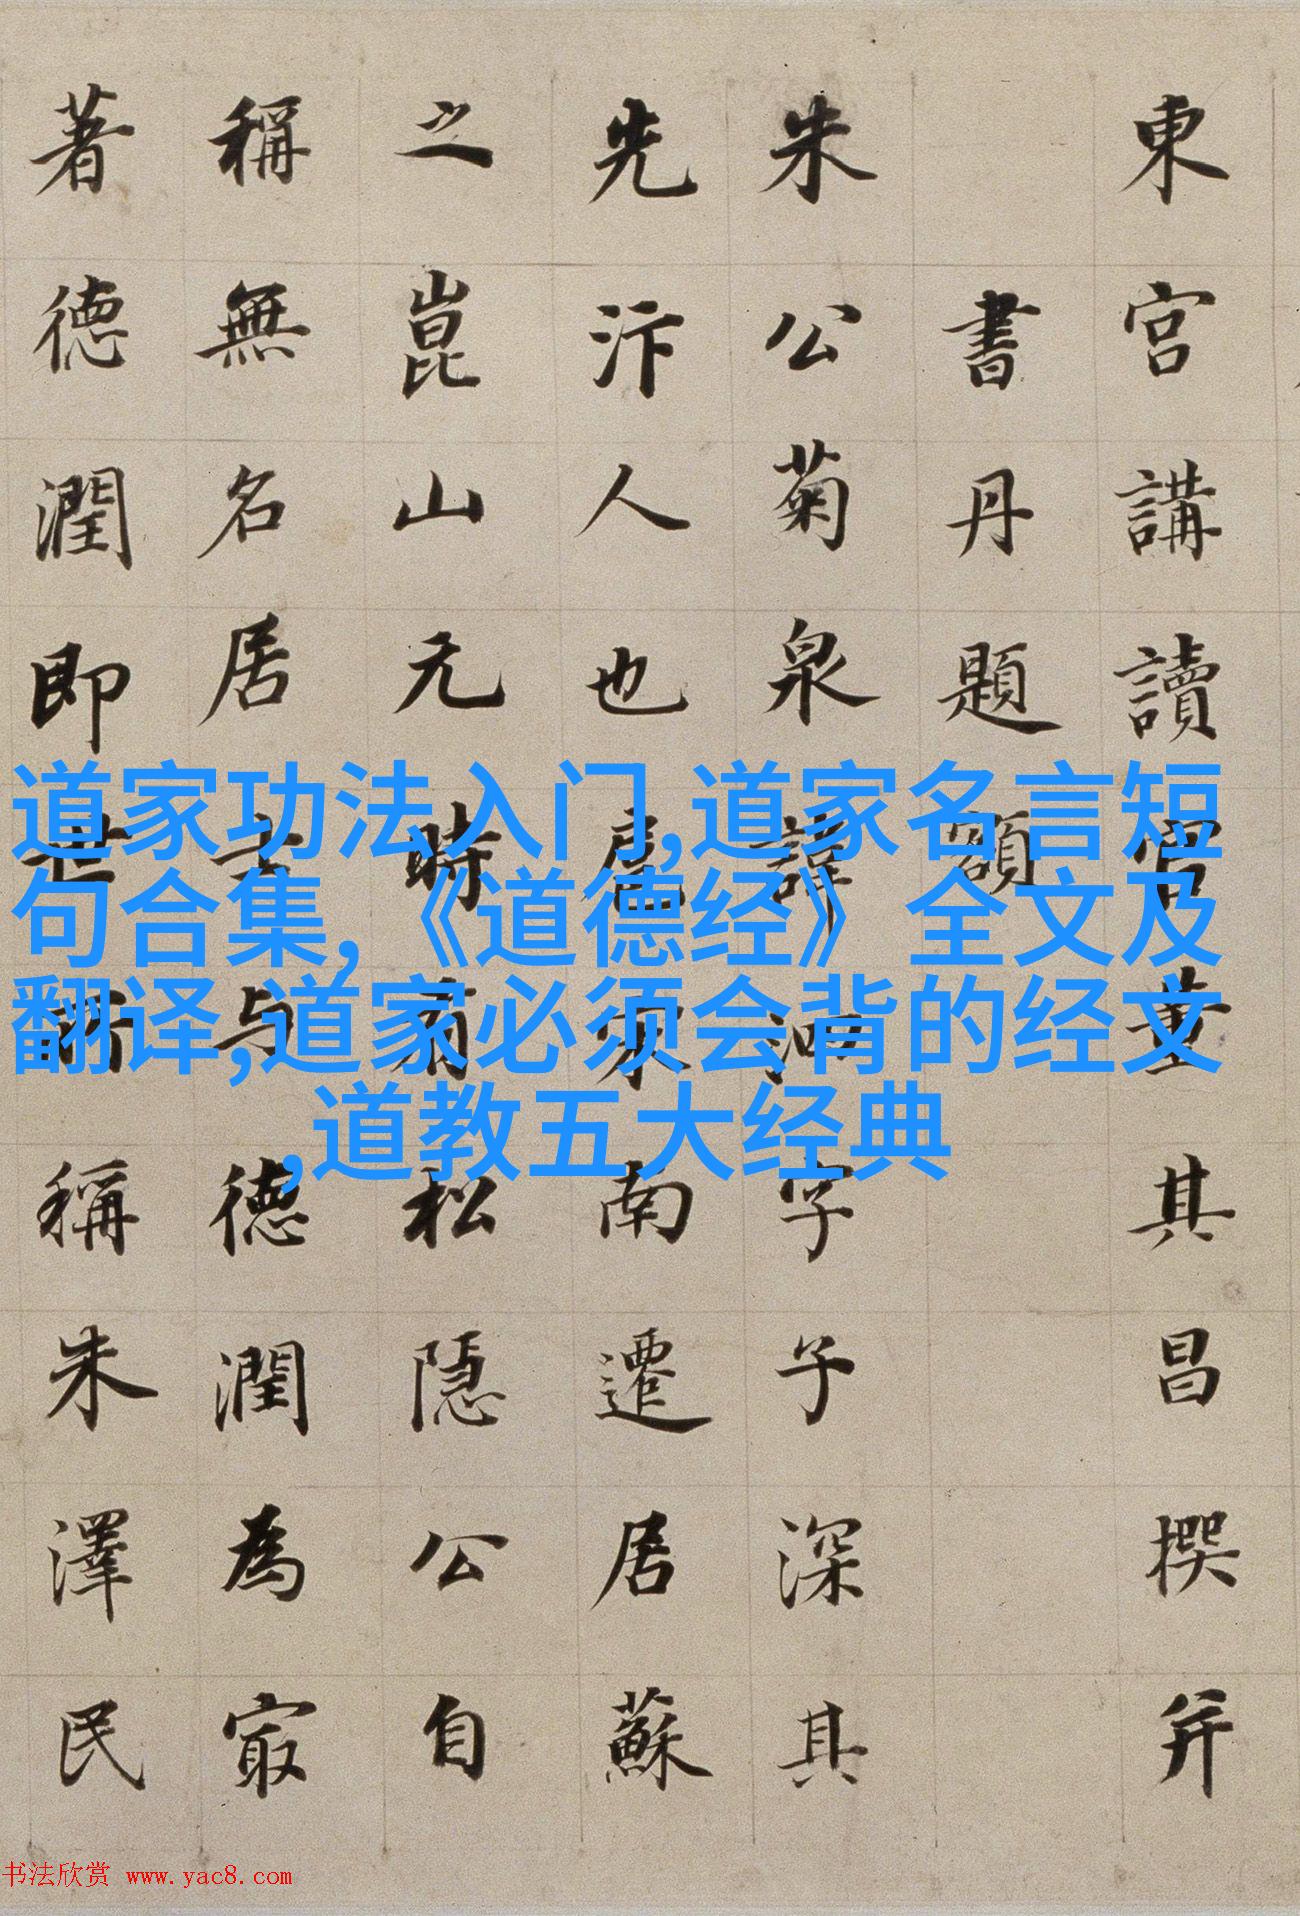 東宮講讀官董其昌撰并
書丹題額
朱公菊泉諱字子深其
先汴人也扈宋南遷居蘇
之崑山元時有松隱公自
稱無名居士与德潤為㝡
著德潤即世所稱朱澤民
道家功法入门,道家名言短
句合集,《道德经》全文及
翻译,道家必须会背的经文
,道教五大经典
书法欣赏 www.yac8.com